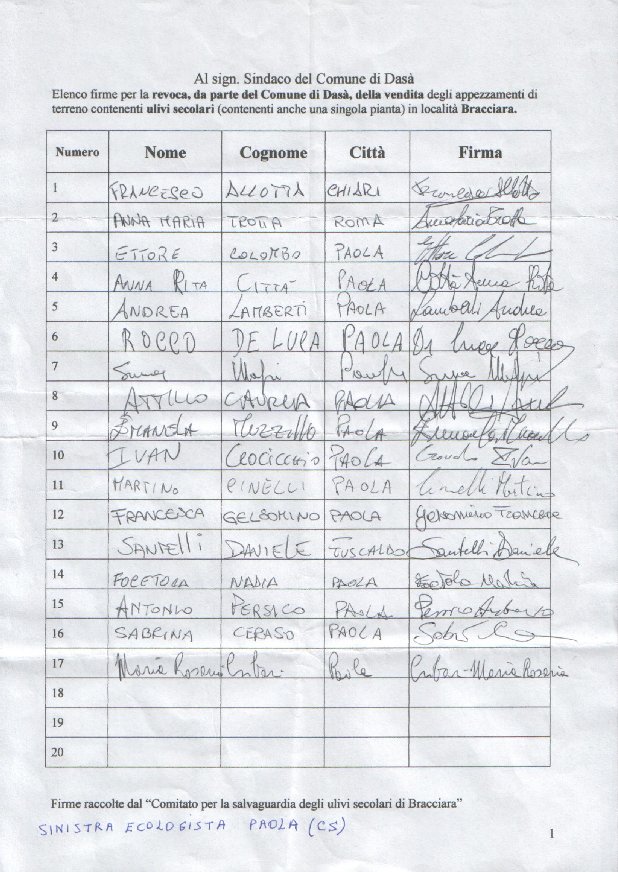 Al sign. Sindaco del Comune di Dasà
Elenco firme per la revoca, da parte del Comune di Dasà, della vendita degli appezzamenti di
terreno contenenti ulivi secolari (contenenti anche una singola pianta) in località Bracciara.
Numero Nome Cognome Città Firma
1 FRANCESCO ALLOTTA CHIARI Francesco Allotta
2 ANNA MARIA TROTTA ROMA
3 ETTORE COLOMBO PAOLA
4 ANNA RITA CITTÀ PAOLA Città Anna Rita
5 ANDREA LAMBERTI PAOLA Lamberti Andrea
6 ROCCO DE LUCA PAOLA De Luca Rocco
7
8 ATTILIO PAOLA
9 EMANUELA PAOLA
10 IVAN PAOLA
11 MARTINO PAOLA
12 FRANCESCA GELSOMINO PAOLA Gelsomino Francesca
13 SANTELLI DANIELE FUSCALDO Santelli Daniele
14 NADIA PAOLA
15 ANTONIO PERSICO PAOLA Persico Antonio
16 SABRINA CERASO PAOLA
17 Maria Rosaria Paola Maria Rosaria
18
19
20
Firme raccolte dal “Comitato per la salvaguardia degli ulivi secolari di Bracciara”
SINISTRA ECOLOGISTA PAOLA (CS)
1